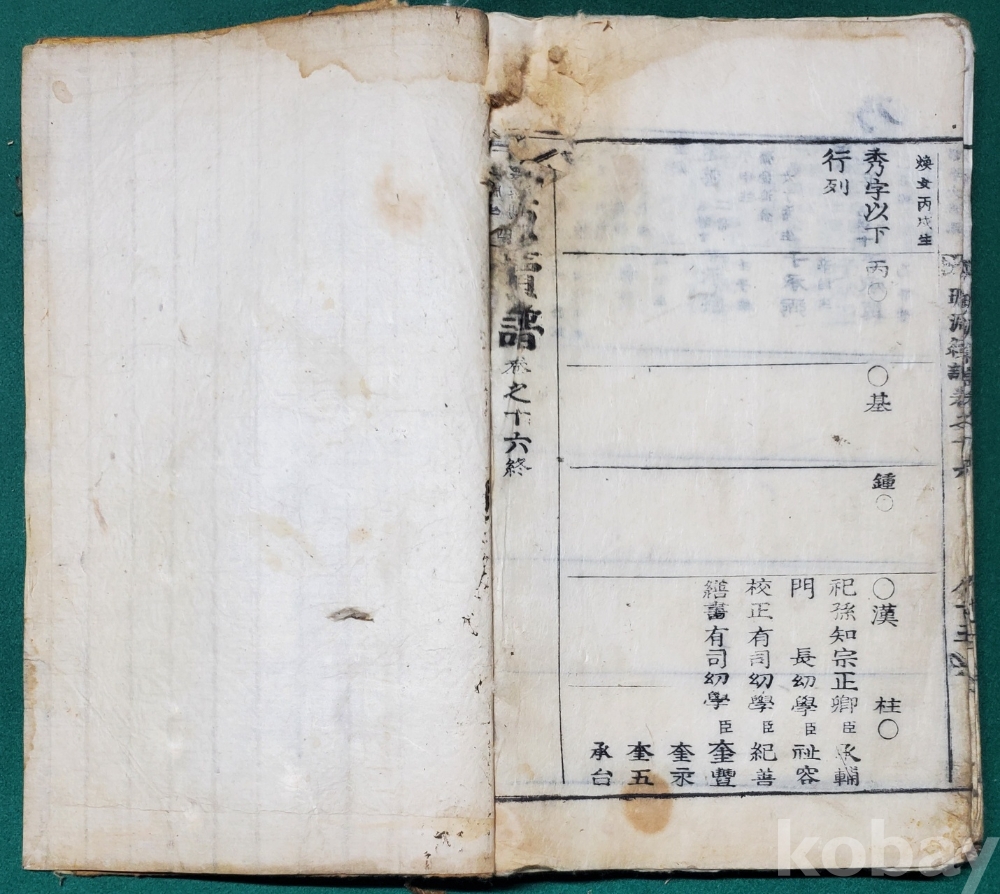 煥女丙戌生
秀字以下 丙〇 〇基 鍾〇 〇漢 柱〇
行列
祀孫知宗正卿臣承輔
門 長幼學臣祉容
校正有司幼學臣紀善
繕書有司幼學臣奎豐
奎永
奎五
承台
譜 卷之十六終
卷之十六
kobay